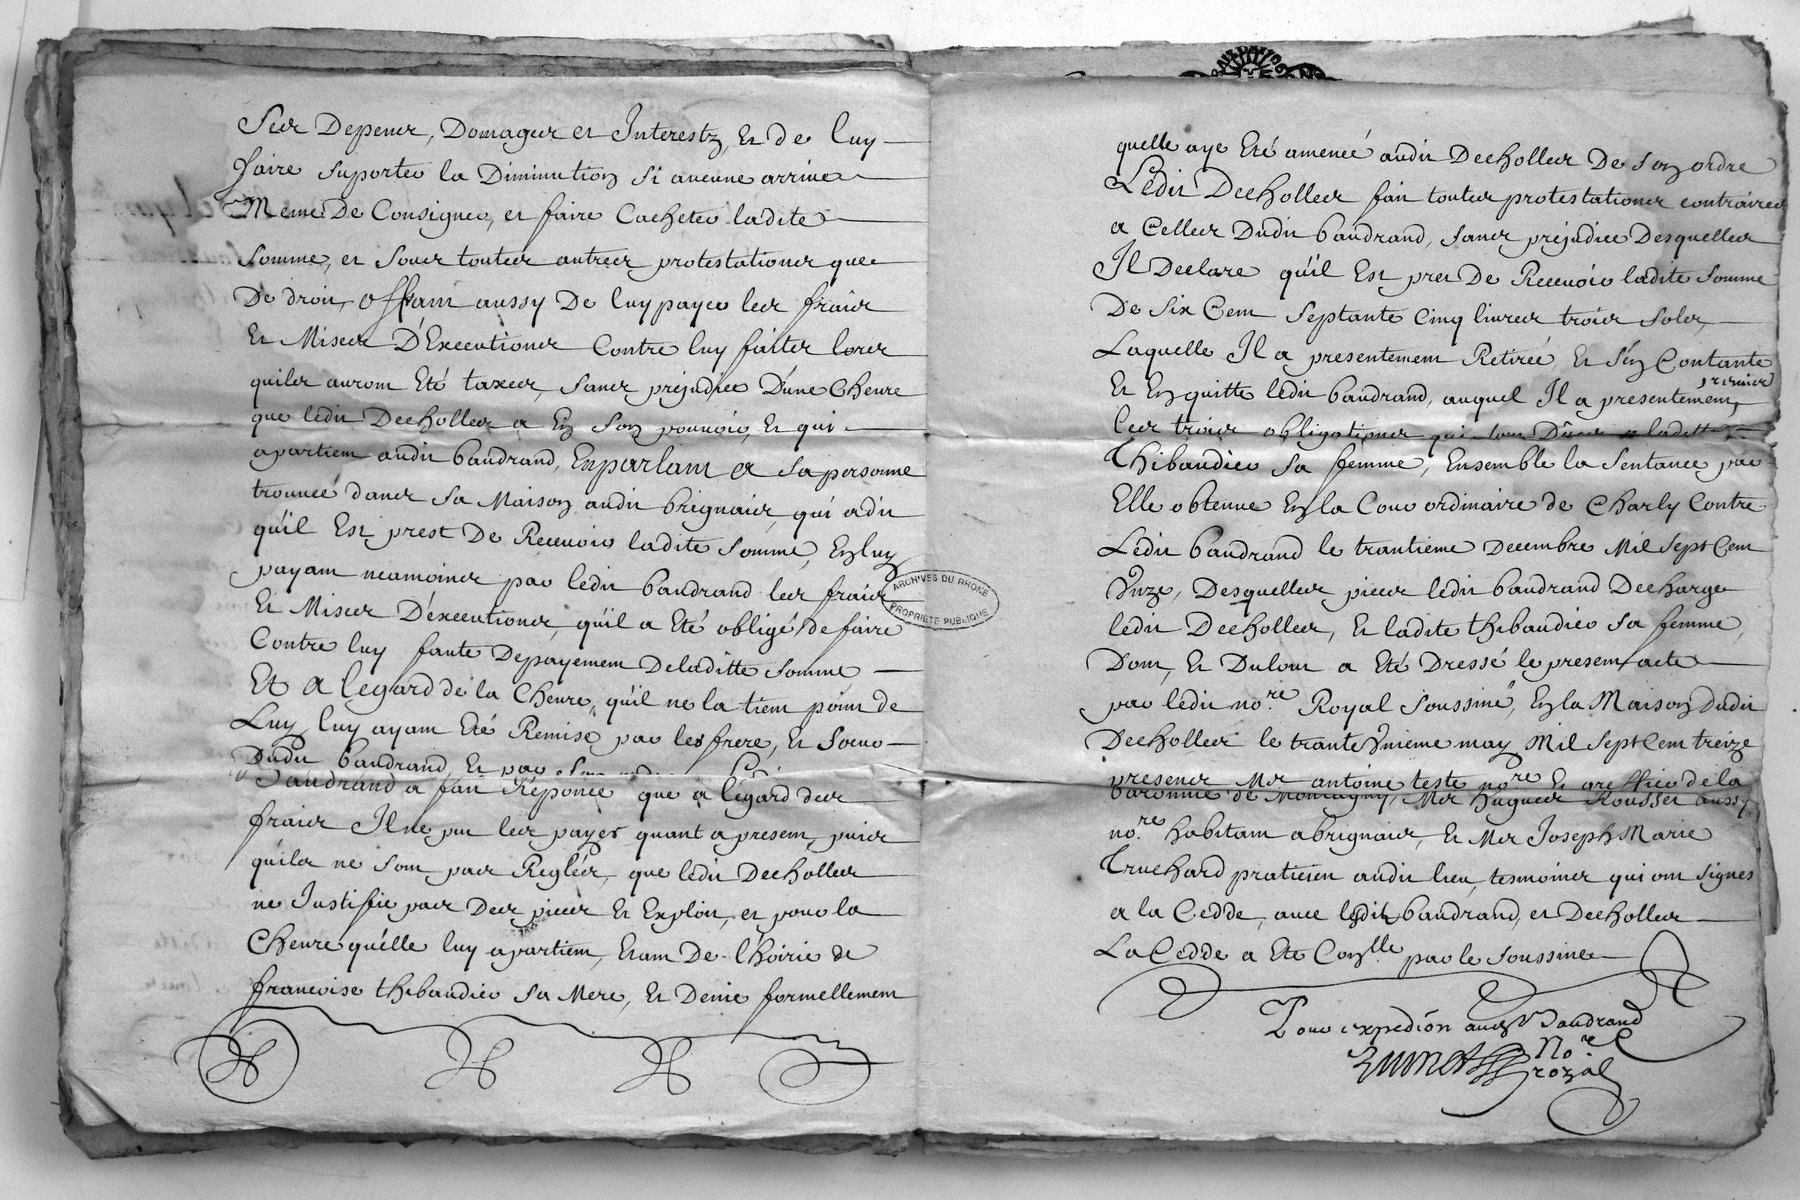 Ses Depens, Domages et Interestz, Et de luy
faire suporter la Diminution si aucune arrive
Meme De Consigner, et faire Cacheter ladite
Somme, et sous toutes autres protestations que
De droit, offrant aussy De luy payer les frais
Et Mises D'Executions Contre luy faites lors
quils auront Eté taxes, sans préjudice D'une Chevre
que ledit Decholles a En Son pouvoir, Et qui
apartient audit baudrand, En parlant a sa personne
trouvée dans sa Maison audit brignais, qui a dit
qu'il Est prest De Recevoir ladite Somme, En luy
payant neamoins par ledit baudrand les frais
Et Mises D'executions, qu'il a Eté obligé de faire
Contre luy faute Depayement Deladitte Somme
Et A legard de la Chevre, qu'il ne la tient point de
Luy, luy ayant Eté Remise par les frere, Et Soeur
Dudit baudrand, Et par Son
Baudrand a fait Réponce que a légard des
frais Il ne peut les payer quant a present, puis
qu'ils ne sont pas Reglés, que ledit Decholles
ne Justifie pas Des pieces Et Exploit, et pour la
Chevre qu'elle luy apartient, Etant De l'hoirie de
francoise thibaudier Sa Mere, Et Denie formellement
quelle aye Eté amenée audit Decholles De son ordre
Ledit Decholles fait toutes protestations contraires
a Celles Dudit baudrand, sans préjudice Desquelles
Il Declare qu'il Est prest De Recevoir ladite Somme
De Six Cent Septante Cinq livres trois sols,
Laquelle Il a presentement Retirée, Et S'en Contante
Et En quitte ledit baudrand, auquel Il a presentement
remis
les trois obligations qui sont Dües a laditte
Thibaudier sa femme, Ensemble la Sentance par
Elle obtenue En la Cour ordinaire de Charly Contre
Ledit baudrand le trantieme Decembre Mil Sept Cent
Unze, Desquelles pieces ledit baudrand Decharge
ledit Decholles, Et ladite thibaudier sa femme,
Dont, Et Dutout a Eté Dressé le present acte
par ledit no.re Royal Soussiné, En la Maison Dudit
Decholles le trante Unieme may Mil Sept Cent treize
presens Mr antoine teste no.re Et greffier de la
baronnie de Montagny, Mr hugues Rousset aussy
no.re habitant a brignais, Et Mr Joseph Marie
Truchard praticien audit lieu, tesmoins qui ont signés
a la Cedde, avec lesdits baudrand, et Decholles
La Cedde a Eté Con.lle par le Soussiné
Pour expedion audit Baudrand
No.re
royal
ARCHIVES DU RHONE
PROPRIETE PUBLIQUE